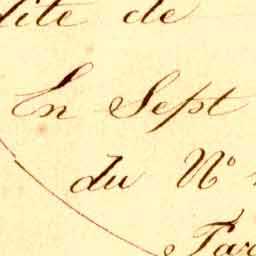 lité de
En Sept
du N°
Par